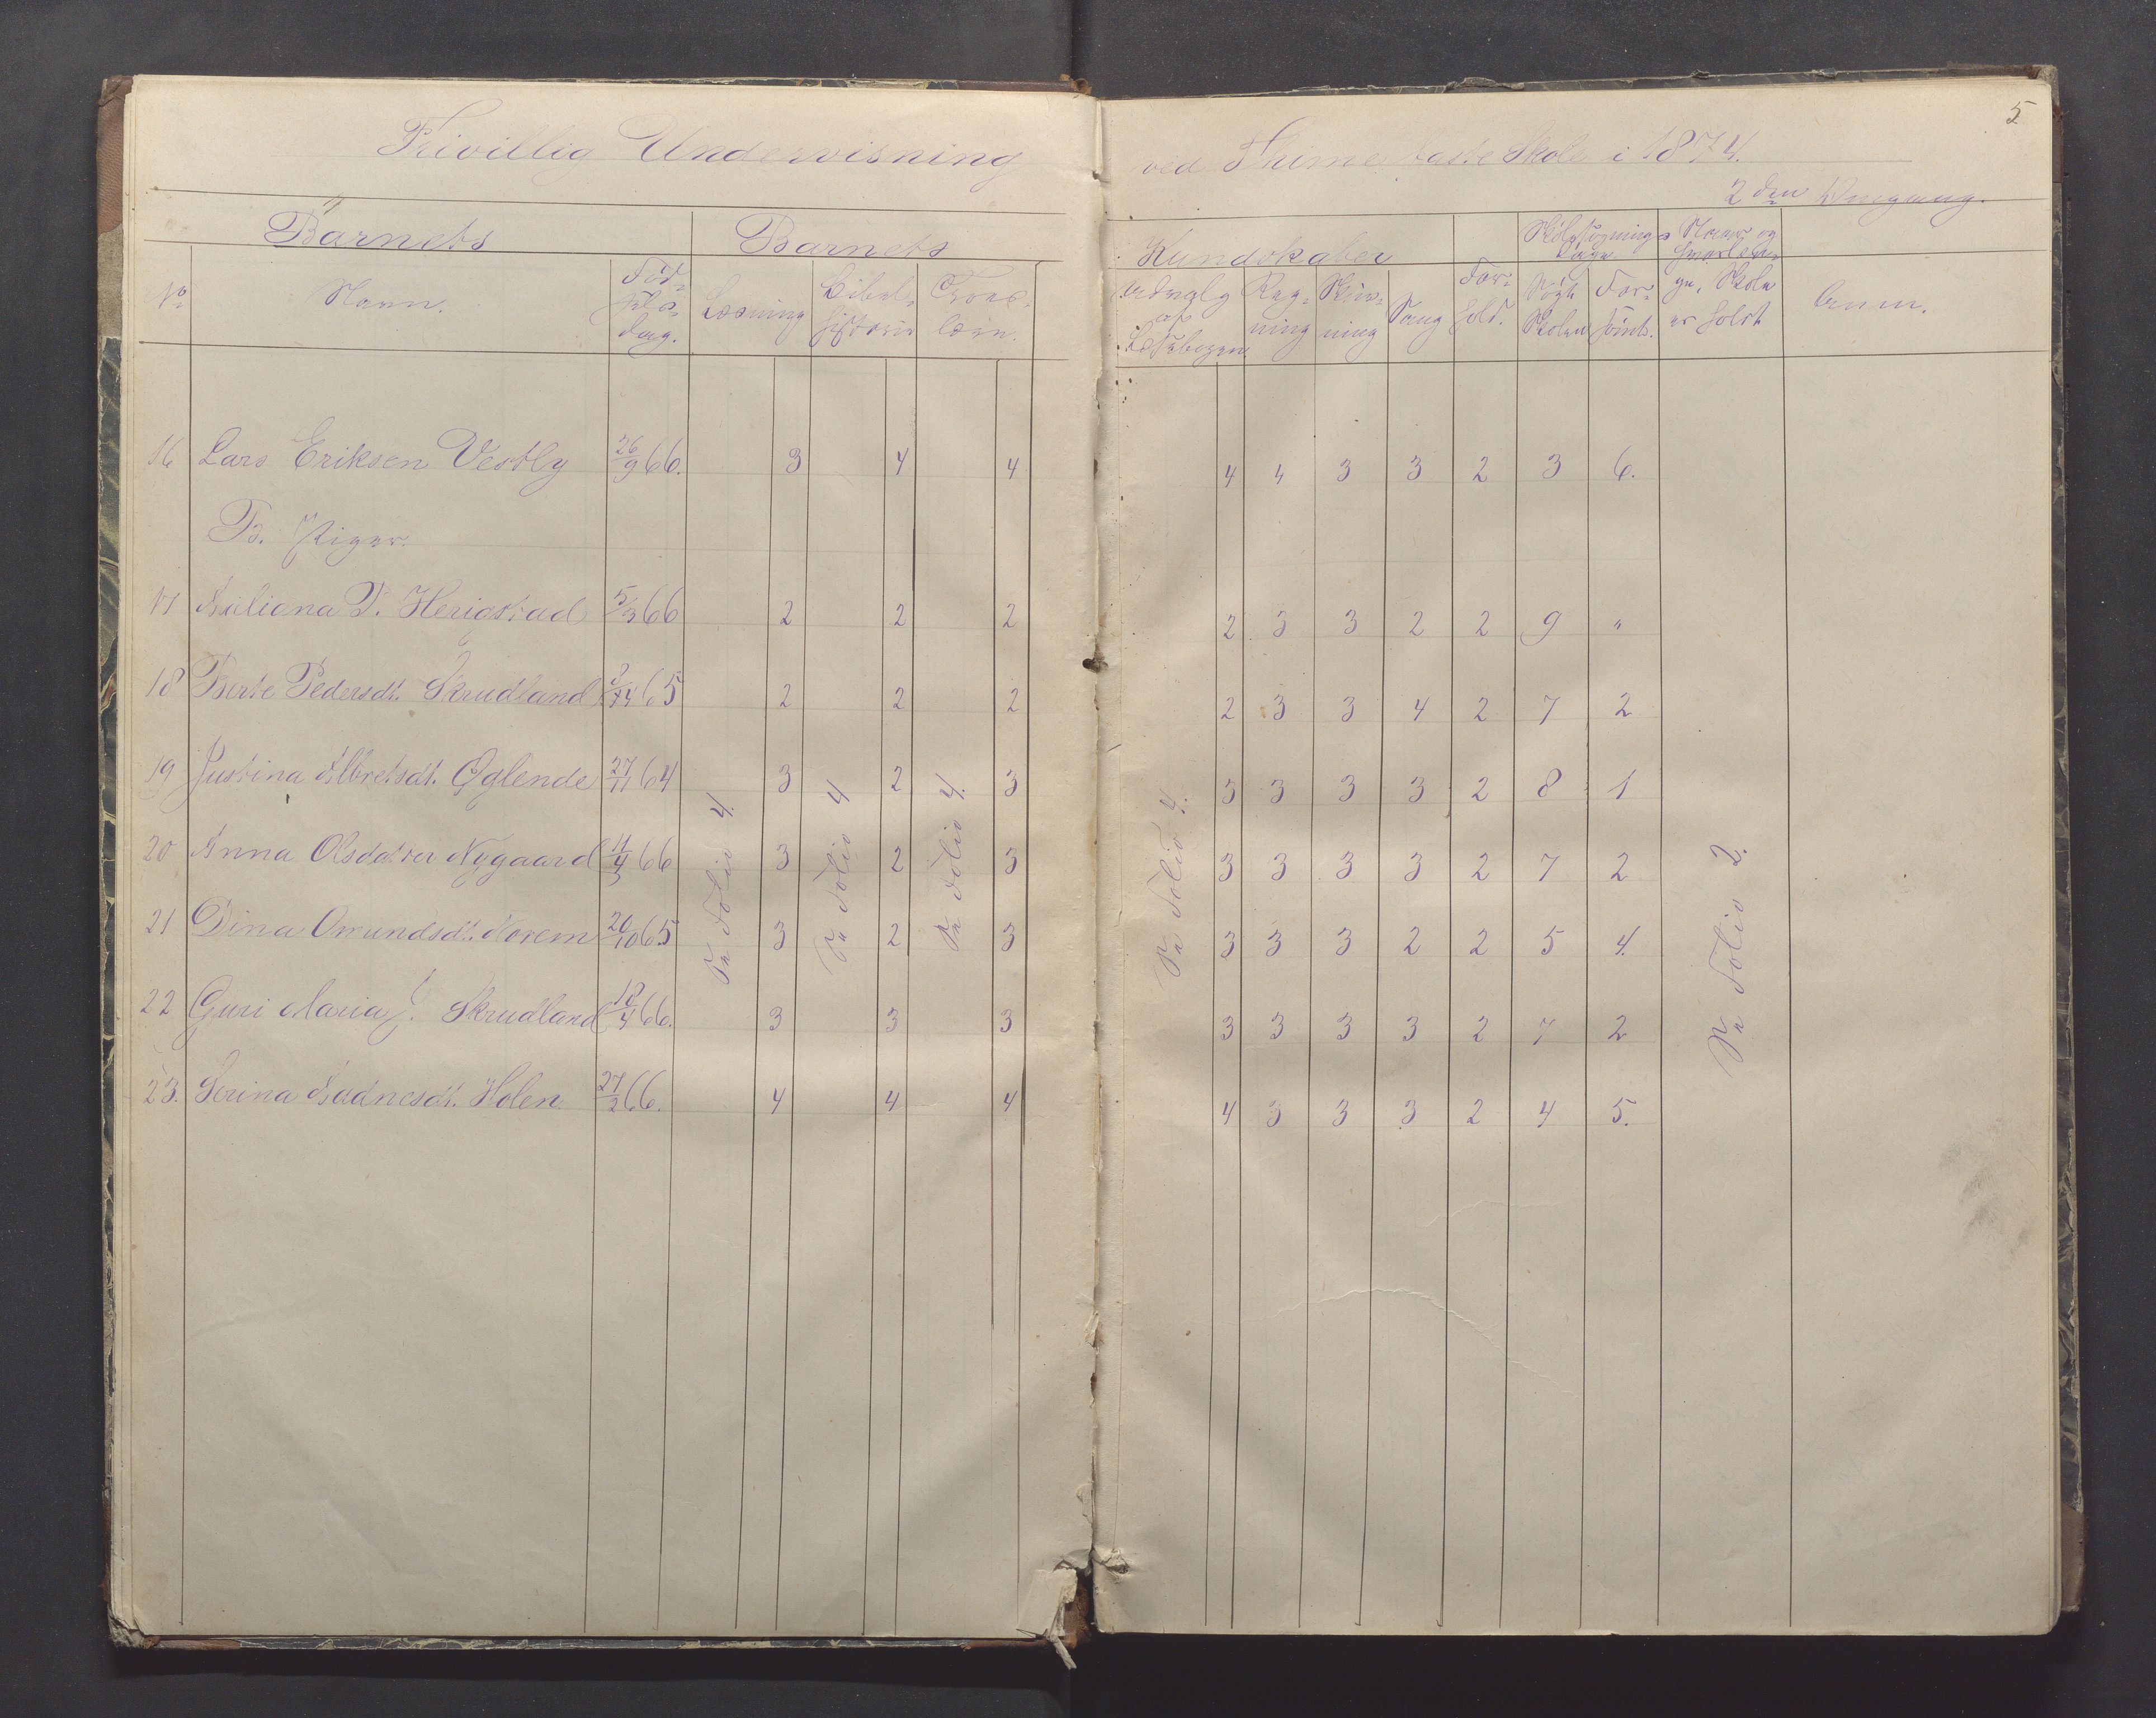 5
Frivillig Undervisning ved Thime faste Skole i 1874.
2den Omgang.
Barnets Barnets Kundskaber Skolesøgnings Dage
No Navn. Fødselsdag. Læsning Bibelhistorie Troeslære. Udvalg af Læsebogen Regning Skrivning Sang Forhold. Søgt Skolen Forsømt. er holdt Anm.
16 Lars Eriksen Vestly 26/9 66. 3 4 4 4 4 3 3 2 3 6.
B. Piger.
17 Juliana T. Herigstad 5/3 66 2 2 2 2 3 3 2 2 9 "
18 Berte Pedersdt. Skrudland 65 2 2 2 2 3 3 4 2 7 2
19 Justina Albretsdt. Øglende 27/11 64 3 2 3 3 3 3 3 2 8 1
20 Anna Olsdatter Nygaard 11/4 66 3 2 3 3 3 3 3 2 7 2
21 Dina Omundsdt. Norem 20/10 65 3 2 3 3 3 3 2 2 5 4.
22 Guri Maria J. Skrudland 18/4 66. 3 3 3 3 3 3 3 2 7 2
23. Serina Aadnesdt. Holen 27/2 66. 4 4 4 4 3 3 3 2 4 5.
Se Folio 4.
Se Folio 4
Se Folio 4.
Se Folio 4.
Se Folio 2.